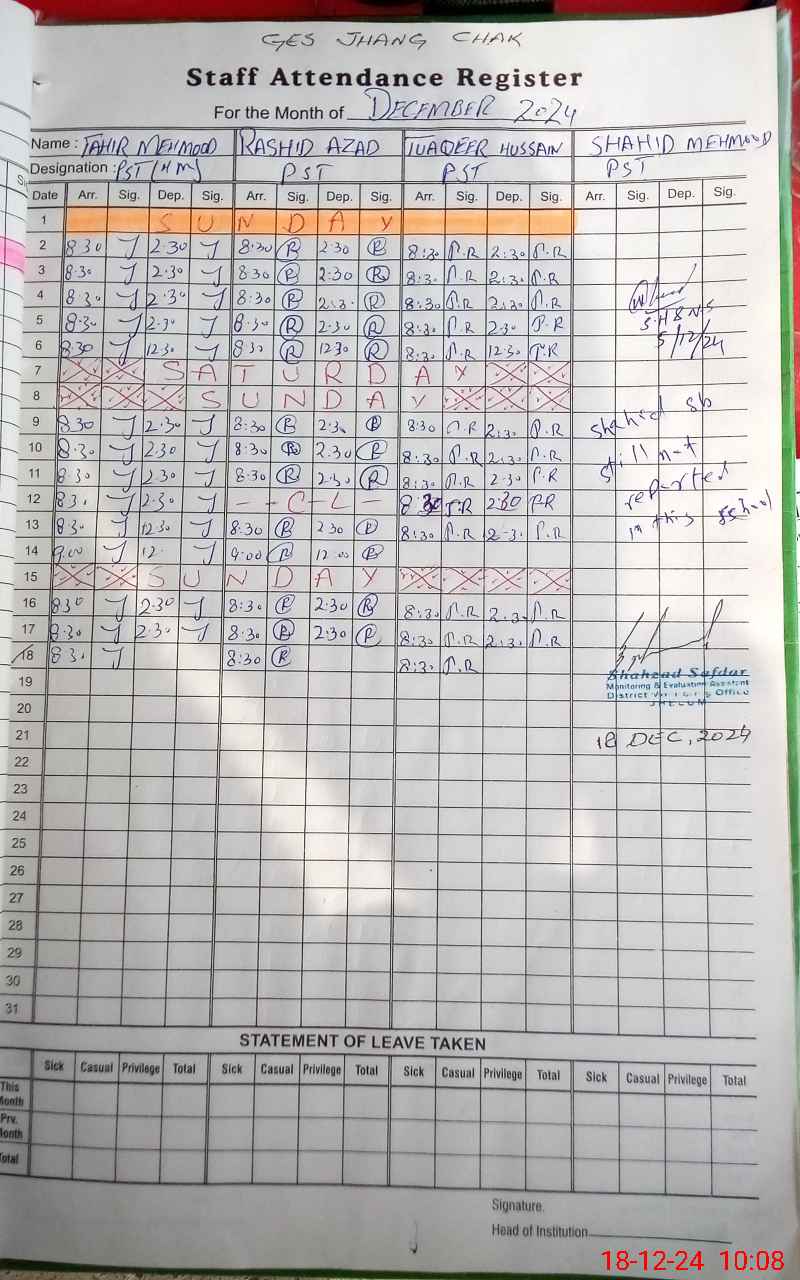 GES JHANG CHAK
Staff Attendance Register
For the Month of DECEMBER 2024
Name : TAHIR MEHMOOD RASHID AZAD TUAQEER HUSSAIN SHAHID MEHMOOD
Designation : PST (HM) PST PST PST
Date Arr. Sig. Dep. Sig. Arr. Sig. Dep. Sig. Arr. Sig. Dep. Sig. Arr. Sig. Dep. Sig.
1 SUNDAY
2 8.30 J 2.30 J 8:30 R 2.30 R 8:30 P.R 2:30 P.R
3 8.30 J 2.30 J 8:30 R 2:30 R 8:30 P.R 2:30 P.R
4 8.30 J 2.30 J 8:30 R 2:30 R 8:30 P.R 2:30 P.R
5 8.30 J 2.30 J 8:30 R 2:30 R 8:30 P.R 2:30 P.R
5/12/24
6 8.30 J 12.30 J 8:30 R 12:30 R 8:30 P.R 12:30 P.R
7 SATURDAY
8 SUNDAY
9 8.30 J 2.30 J 8:30 R 2:30 R 8:30 P.R 2:30 P.R
shahid sb
10 8.30 J 2.30 J 8:30 R 2:30 R 8:30 P.R 2:30 P.R
still not
11 8.30 J 2.30 J 8:30 R 2:30 R 8:30 P.R 2:30 P.R
reported
12 8.30 J 2.30 J - - C - L - 8:30 P.R 2:30 P.R
in this school
13 8.30 J 12.30 J 8:30 R 2:30 R 8:30 P.R 2:30 P.R
14 9.00 J 12. J 9:00 R 12:00 R
15 SUNDAY
16 8.30 J 2.30 J 8:30 R 2:30 R 8:30 P.R 2:30 P.R
17 8.30 J 2.30 J 8:30 R 2:30 R 8:30 P.R 2:30 P.R
18 8.30 J 8:30 R 8:30 P.R
Shahzad Safdar
Monitoring & Evaluation Assistant
District Office
JHELUM
19
20
18 DEC, 2024
21
22
23
24
25
26
27
28
29
30
31
STATEMENT OF LEAVE TAKEN
Sick Casual Privilege Total Sick Casual Privilege Total Sick Casual Privilege Total Sick Casual Privilege Total
This Month
Prv. Month
Total
Signature.
Head of Institution
18-12-24 10:08